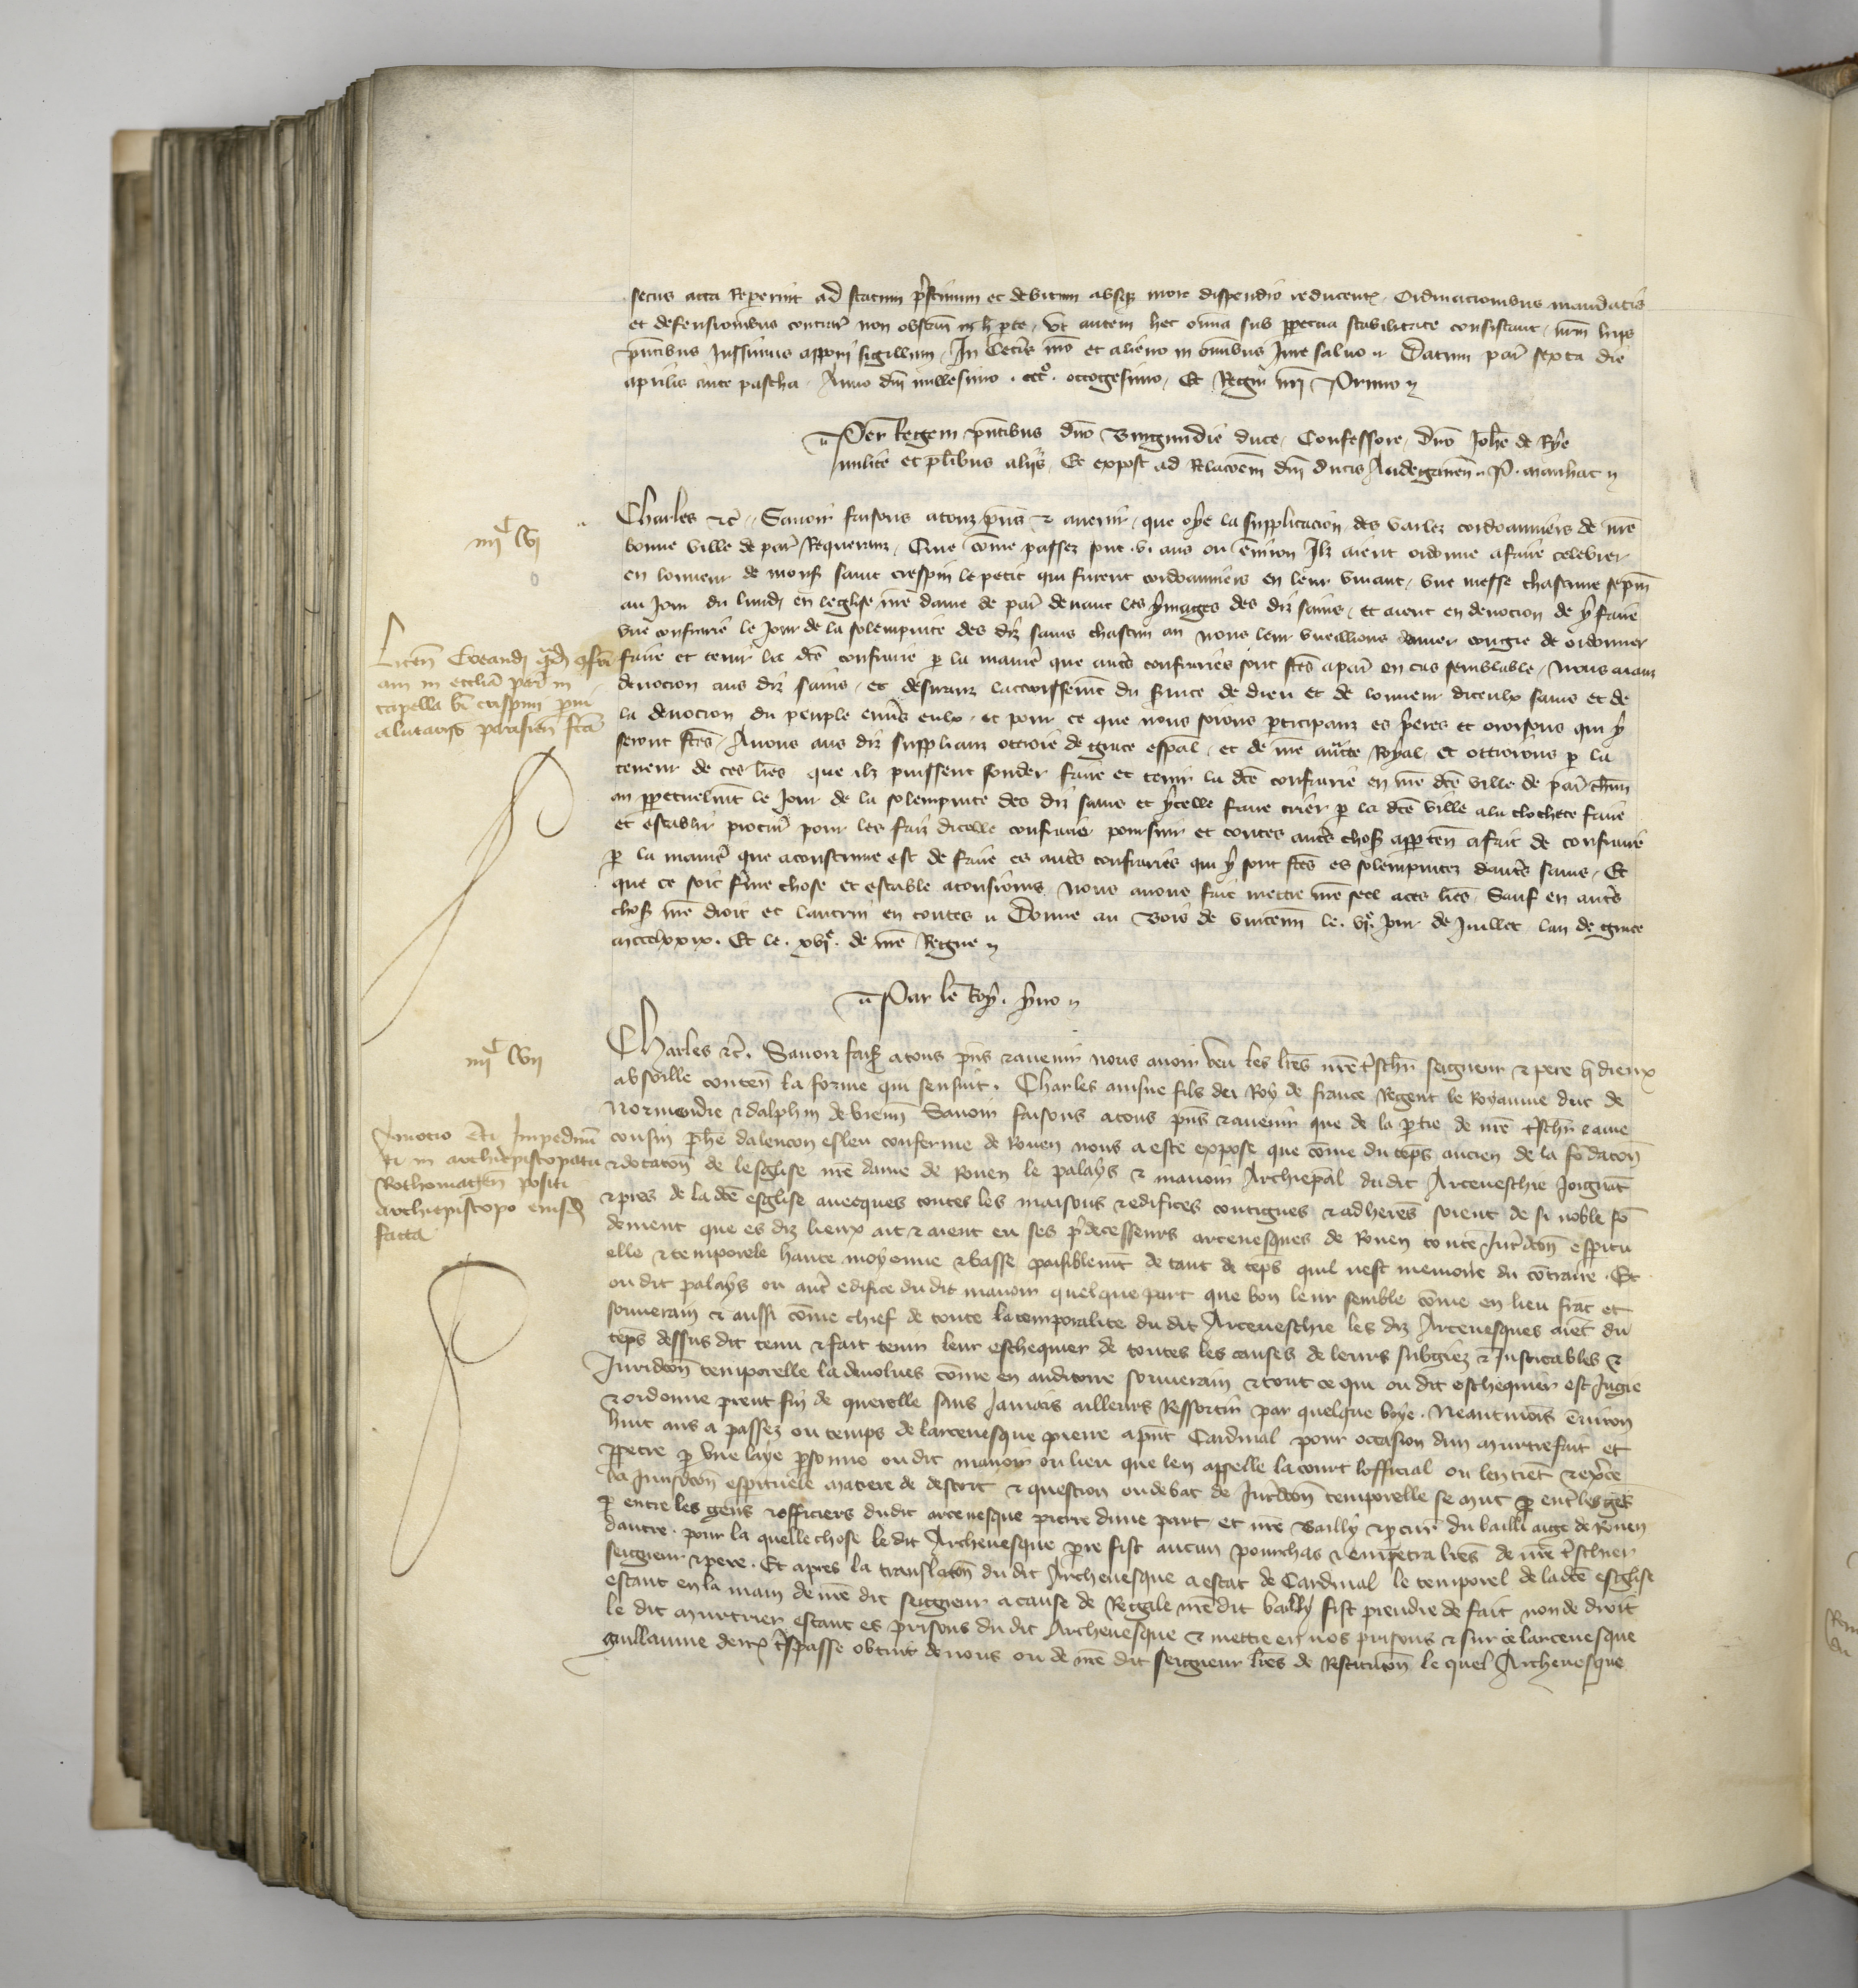 secus acta reperint ad statum pristinum et debitum absque more dispendio reducentes. Ordinacionibus mandatis
et defensionibus contrariis non obstan in hac parte. Ut autem hec omnia sub perpetua stabilitate consistant, nrm hiis
pntibus jussimus apponi sigillum. In ceteris nro et alieno in omnibus jure salvo. Datum par sexta die
aprilis ante pascha. Anno dni millesimo. ccc°. octogesimo, Et Regni nri Primo
Per Regem pntibus dno Burgundie duce, Confessore, dno Johe de Rye
milite et plribus aliis, Et expost ad relacoem dni ducis Andegaven. P. manhac
iiijc lvj
Charles etc. Savoir faisons a touz pns et avenir, que oye la supplicacion des varlez cordoanniers de nre
bonne ville de par Requeranz, Que come passez sont vi ans ou environ Ilz aient ordonne a faire celebrer
en lonneur de mons saint crespin le petit qui furent cordoanniers en leur vivant, une messe chascune sepm
au jour du lundi en leglise nre dame de par devant les ymages des diz sains, et aient en devocion de y faire
une confrarie le jour de la solempnite des diz sains chascun an nous leur vueillions donner congie de ordonner
Licen Creandi quandam confri
am in ecclia pari in
capella bi crispini pro
alutariis parisien fca
faire et tenir la dce confrarie p la maniere que autres confraries sont fces a par en cas semblable. Nous aianz
devocion aus diz sains, et desiranz laccroissement du service de dieu et de lonneur diceulx sains et de
la devocion du peuple envers eulx, et pour ce que nous soions participanz es prieres et oroisons qui y
seront fces, Avons aus diz supplianz ottroie de grace espal, et de nre aucte Royal, et ottroions p la
teneur de ces lres que ilz puissent fonder faire et tenir la dce confrarie en nre dce ville de par chun
an perpetuelment le jour de la solempnite des diz sains et ycelle faire crier p la dce ville a la clochete faire
et establir procur pour les faiz dicelle confrarie poursuir et toutes autres choses apparten a fait de confrarie
p la maniere que acoustume est de faire es autres confraries qui y sont fces es solempnitez dautres sains. Et
que ce soit ferme chose et estable a tousiours, Nous avons fait mettre nre seel a ces lres. Sauf en autres
choses nre droit et lautrui en toutes. Donne au Bois de vincenn le. vje. jour de juillet, lan de grace
mccclxxix. Et le. xvje. de nre Regne
Par le Roy. yvo
iiijc lvij
Charles etc. Savoir fais a tous pns et avenir nous avoir veu les lres nre treschr seigneur et pere que dieux
absoille conten la forme qui sensuit. Charles ainsne fils du Roy de france Regent le Royaume duc de
Normendie et dalphin de vienn Savoir faisons a tous pns et avenir que de la partie de nre treschr et ame
Amotio cuiusdam Impedimen
ti in archiepiscopatu
Rothomagen positi
Archiepiscopo eiusd
facta
cousin phe dalencon esleu conferme de Rouen nous a este exppose que come du temps ancien de la fondacon
et dotacon de lesglise nre dame de Rouen le palays et manoir Archiepal dudit Arceveschie joignat
et pres de la dce esglise avecques toutes les maisons et edifices contigues et adherens soient de si noble fo
dement que es diz lieux ait et aient eu ses predecesseurs arcevesques de Rouen toute juridcon espiritu
elle et temporele haute moyenne et basse paisiblement de tant de temps quil nest memoire du contraire. Et
ou dit palays ou autre edifice du dit manoir quelque part que bon leur semble come en lieu franc et
souverain et aussi come chief de toute la temporalite du dit Arceveschie les diz Arcevesques aient du
temps dessus dit tenu et fait tenir leur eschequier de toutes les causes de leurs subgiez et justicables et
juridcon temporelle la devolues come en auditoire souverain et tout ce qui ou dit eschequier est jugie
et ordonne prent fin de querelle sans jamais ailleurs ressortir par quelque voye. Neantmois environ
huit ans a passez ou temps de larcevesque pierre a pnt Cardinal pour occasion dun murtre fait et
perpetre p une laye personne ou dit manoir ou lieu que len appelle la court lofficial ou len tient et exerce
la jurisdcon espirituele matiere de descort et question ou debat de jurisdcon temporelle se mut p entre les gens
p entre les gens et officiers dudit arcevesque pierre dune part et nre Bailly et procur du bailliaige de Rouen
dautre. pour la quelle chose le dit Archevesque pierre fist aucun pourchas et empetra lres de nre trescher
seigneur et pere. Et apres la translacon du dit Archevesque a estat de Cardinal le temporel de ladce esglise
estant en la main de nre dit seigneur a cause de Regale nre dit bailly fist prendre de fait non de droit
le dit murtrier estant es prisons du dit Archevesque et mettre en nos prisons et sur ce larcevesque
guillaume derr trespasse obtint de nous ou de nre dit seigneur lres de restitucon le quel Archevesque